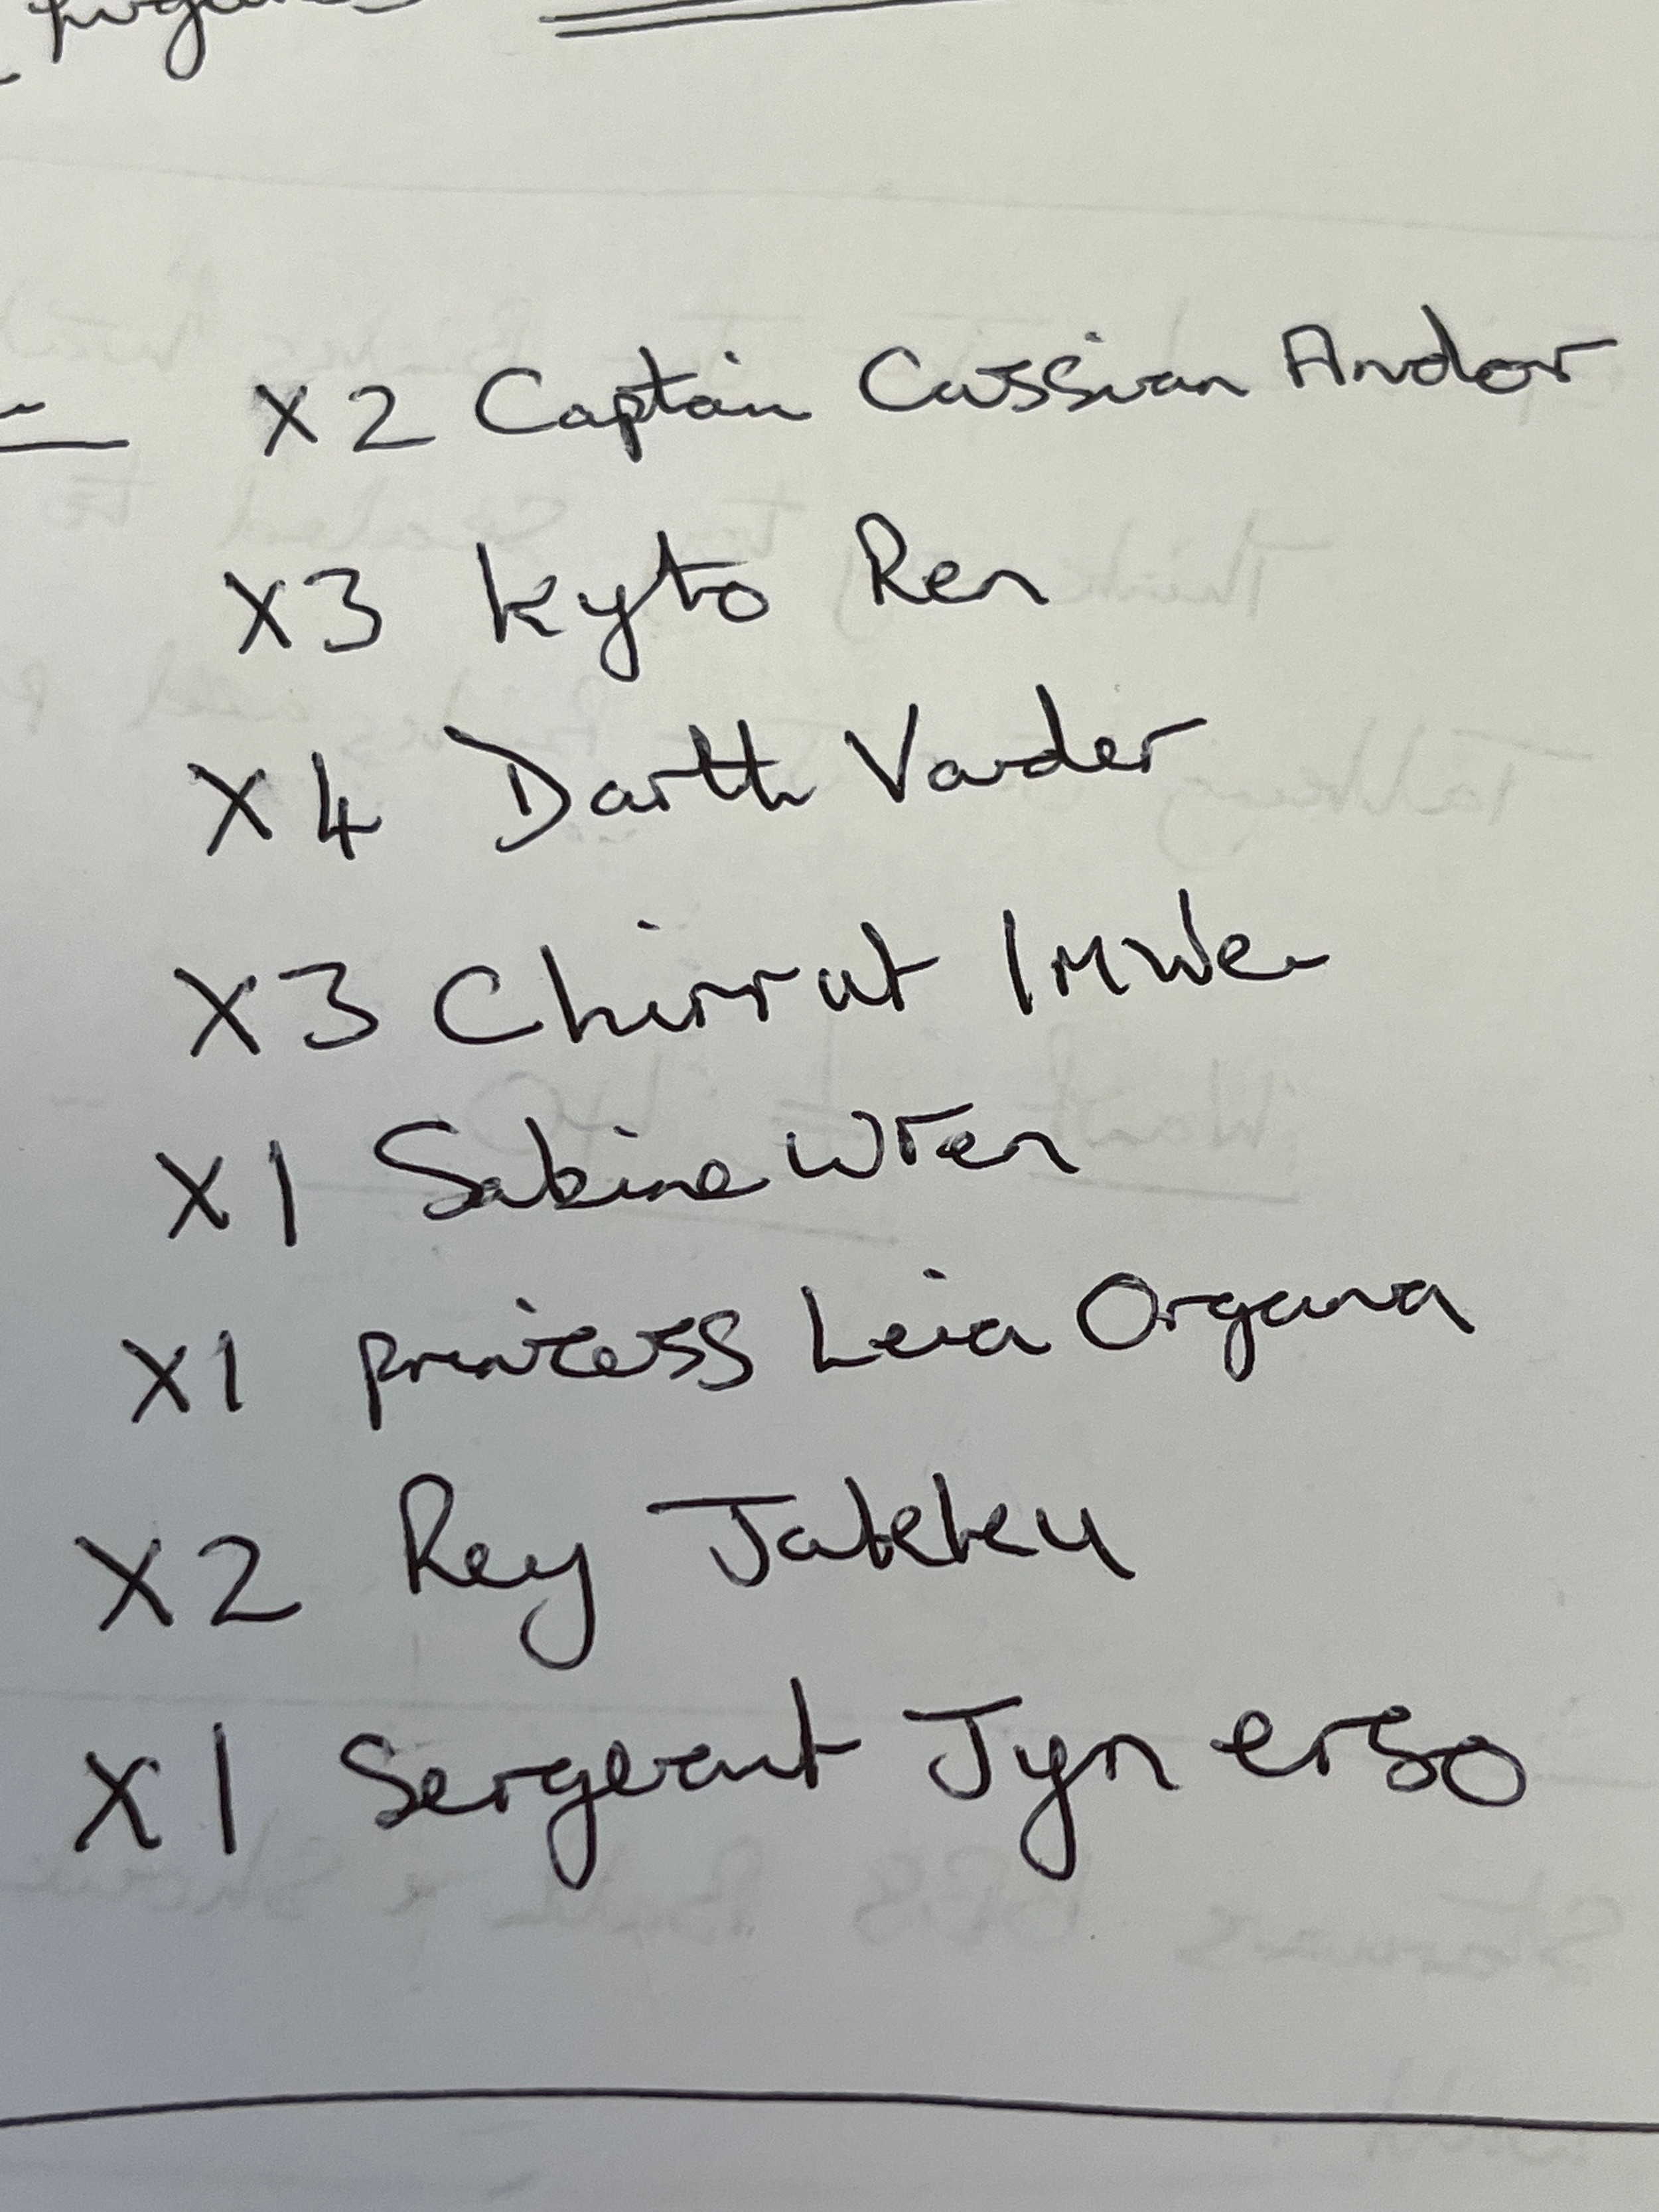 figures
X2 Captain Cassian Andor
X3 Kyto Ren
X4 Darth Vader
X3 Chirrut IMWe
X1 Sabine Wren
X1 princess Leia Organa
X2 Rey Jakku
X1 Sergeant Jyn erso